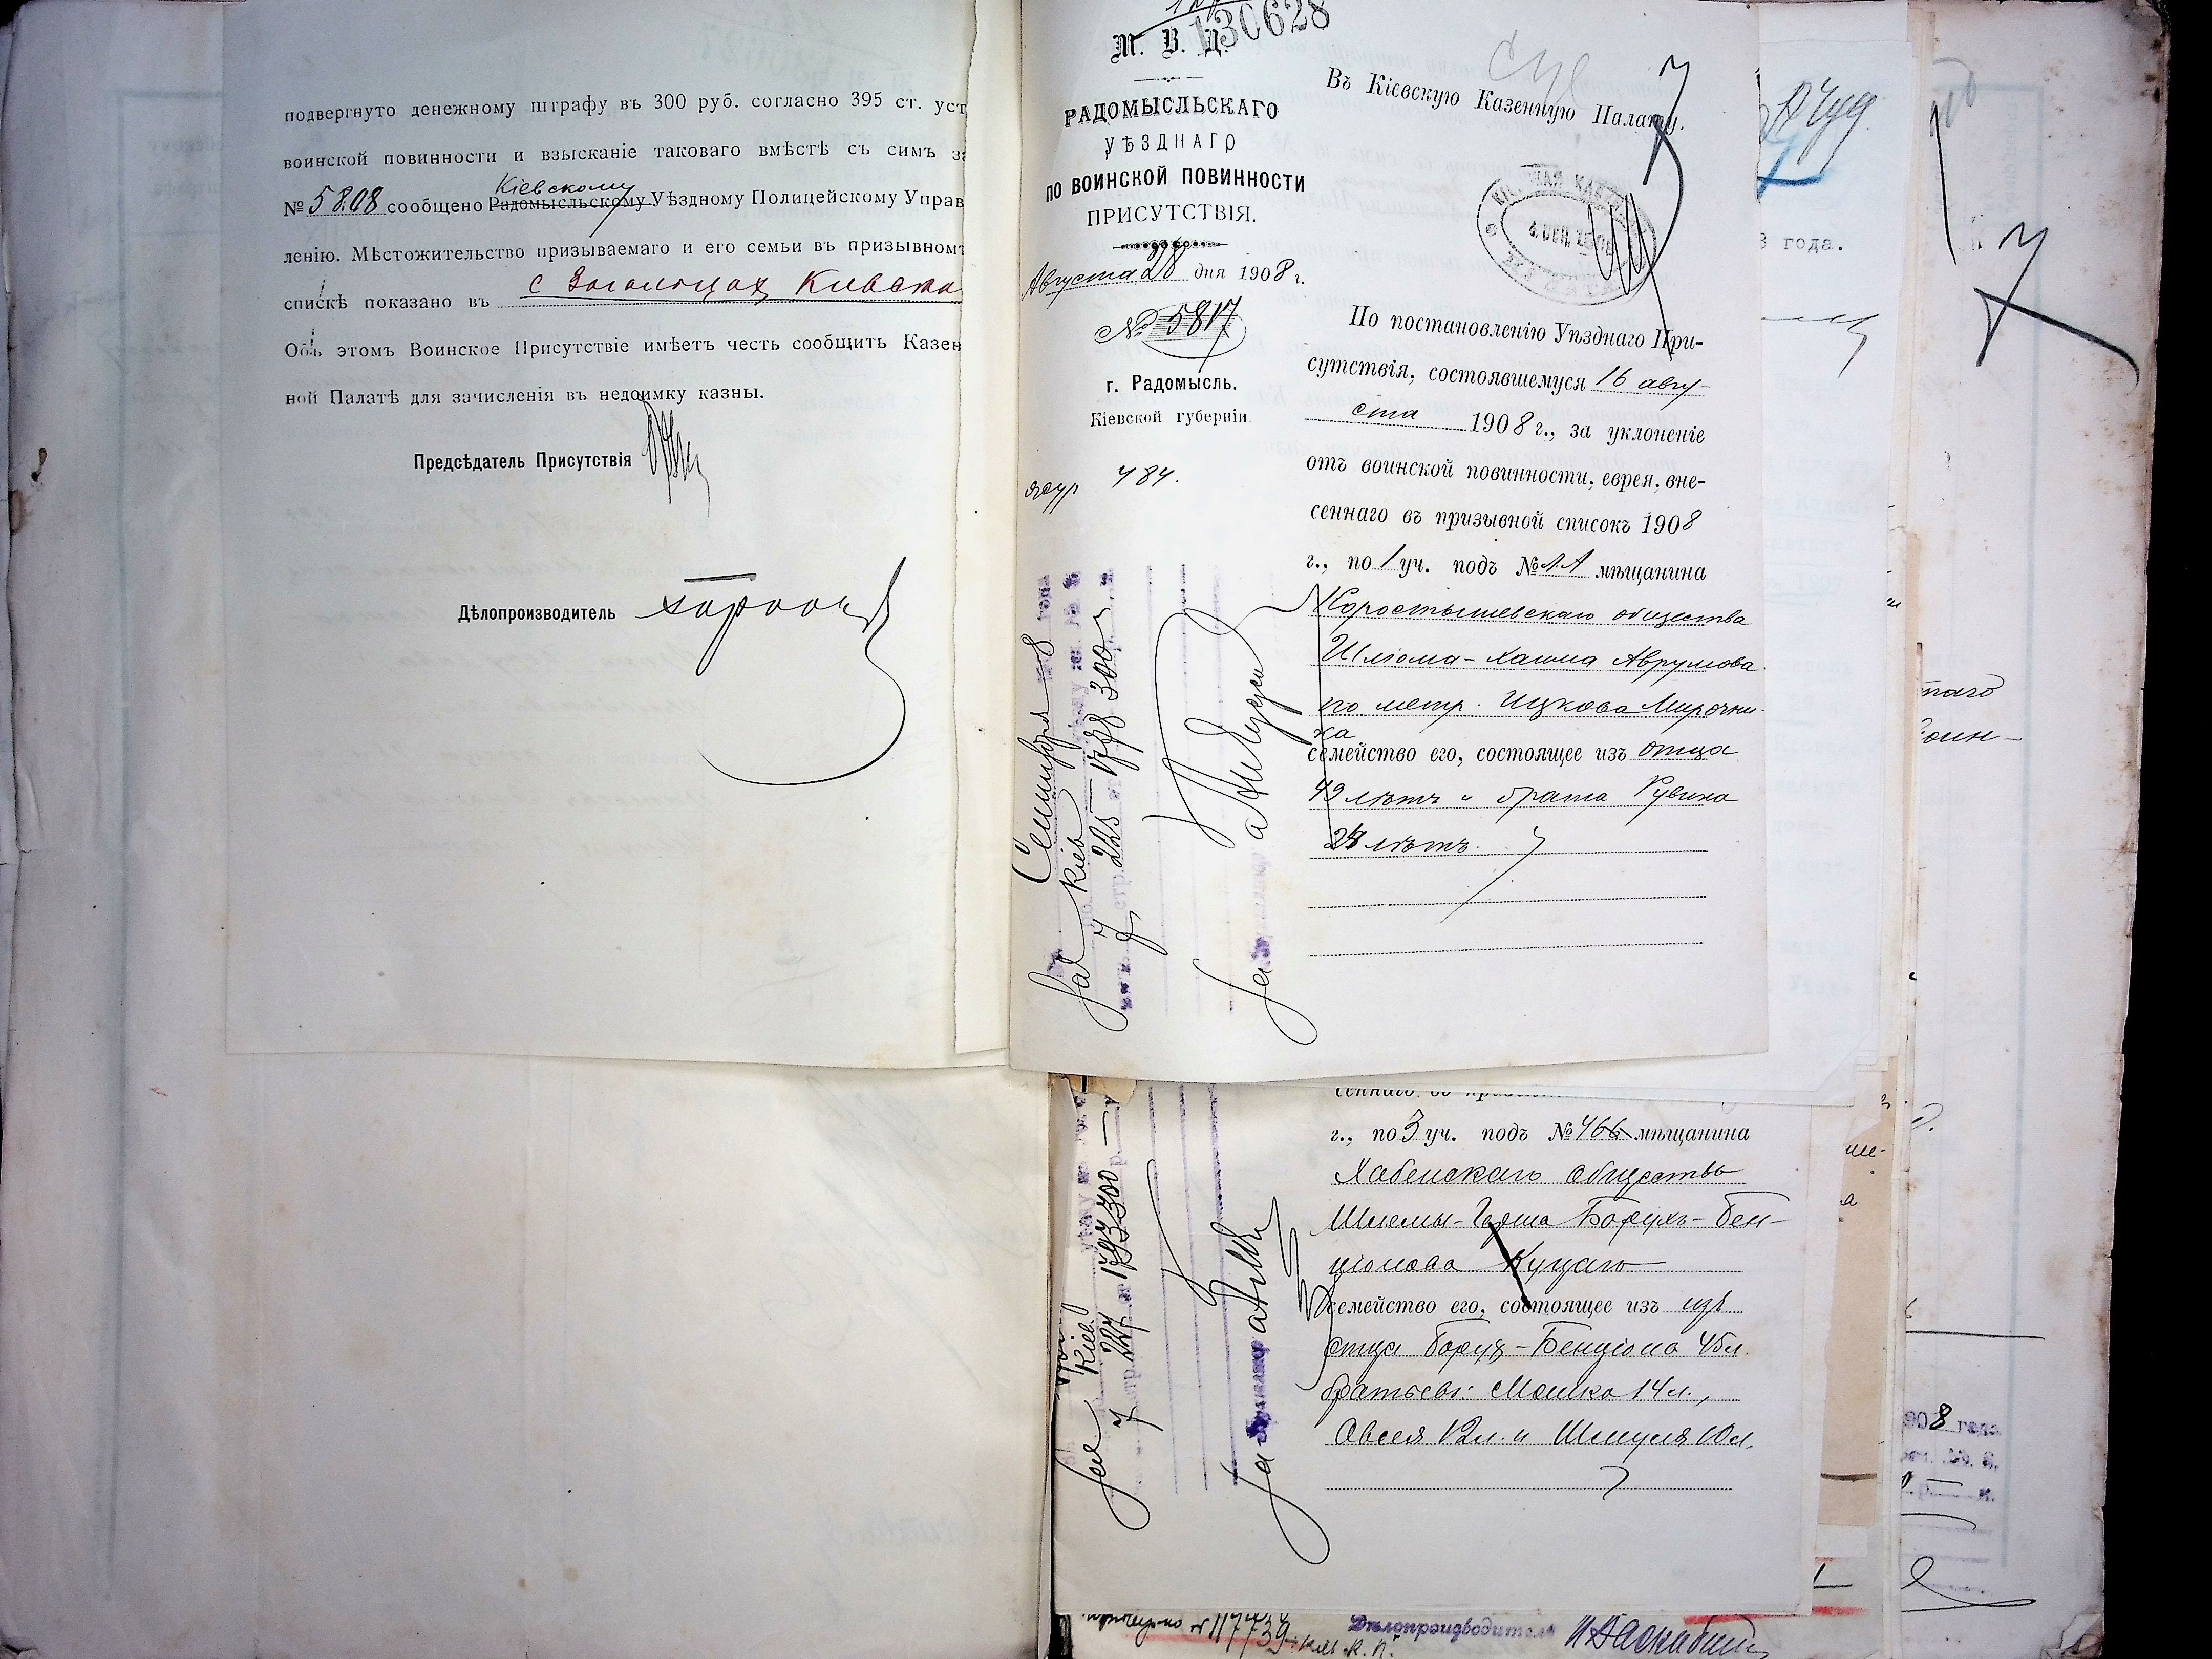 подвергнуто денежному штрафу въ 300 руб. согласно 395 ст. уст
воинской повинности и взысканіе таковаго вмѣстѣ съ симъ за
Кіевскому
№ 5808 сообщено Радомысльскому Уѣздному Полицейскому Управ
ленію. Мѣстожительство призываемаго и его семьи въ призывномъ
спискѣ показано въ с
Объ этомъ Воинское Присутствіе имѣетъ честь сообщить Казен
ной Палатѣ для зачисленія въ недоимку казны.
Предсѣдатель Присутствія
Дѣлопроизводитель
130628
М. В. Д.
РАДОМЫСЛЬСКАГО
УѢЗДНАГО
ПО ВОИНСКОЙ ПОВИННОСТИ
ПРИСУТСТВІЯ.
Августа 28 дня 1908 г.
№ 5817
г. Радомысль.
Кіевской губерніи
484.
Въ Кіевскую Казенную Палату.
По постановленію Уѣзднаго При-
сутствія, состоявшемуся 16 авгу-
ста 1908 г., за уклоненіе
отъ воинской повинности, еврея, вне-
сеннаго въ призывной списокъ 1908
г., по 1 уч. подъ № мѣщанина
Коростышевскаго общества
Шліома-Хаима Аврумова
по метр. Ицкова Мирочни-
ка
семейство его, состоящее изъ отца
49 лѣтъ и брата Рувина
24 лѣтъ.
Сентября 8 года
Кіев
7 225 1788 300
г., по 3 уч. подъ № 466 мѣщанина
Хабенскаго общества
Шлемы-Герша Борухъ-Бен-
ціонова Куцаго
семейство его, состоящее изъ изъ
отца Борух-Бенціона 45 л.
братьевъ: Мошко 14 л.,
Овсея 12 л. и Шмуля 10 л.
Кіев
7 227 1793 300
3 года.
таго
117739
Дѣлопроизводитель